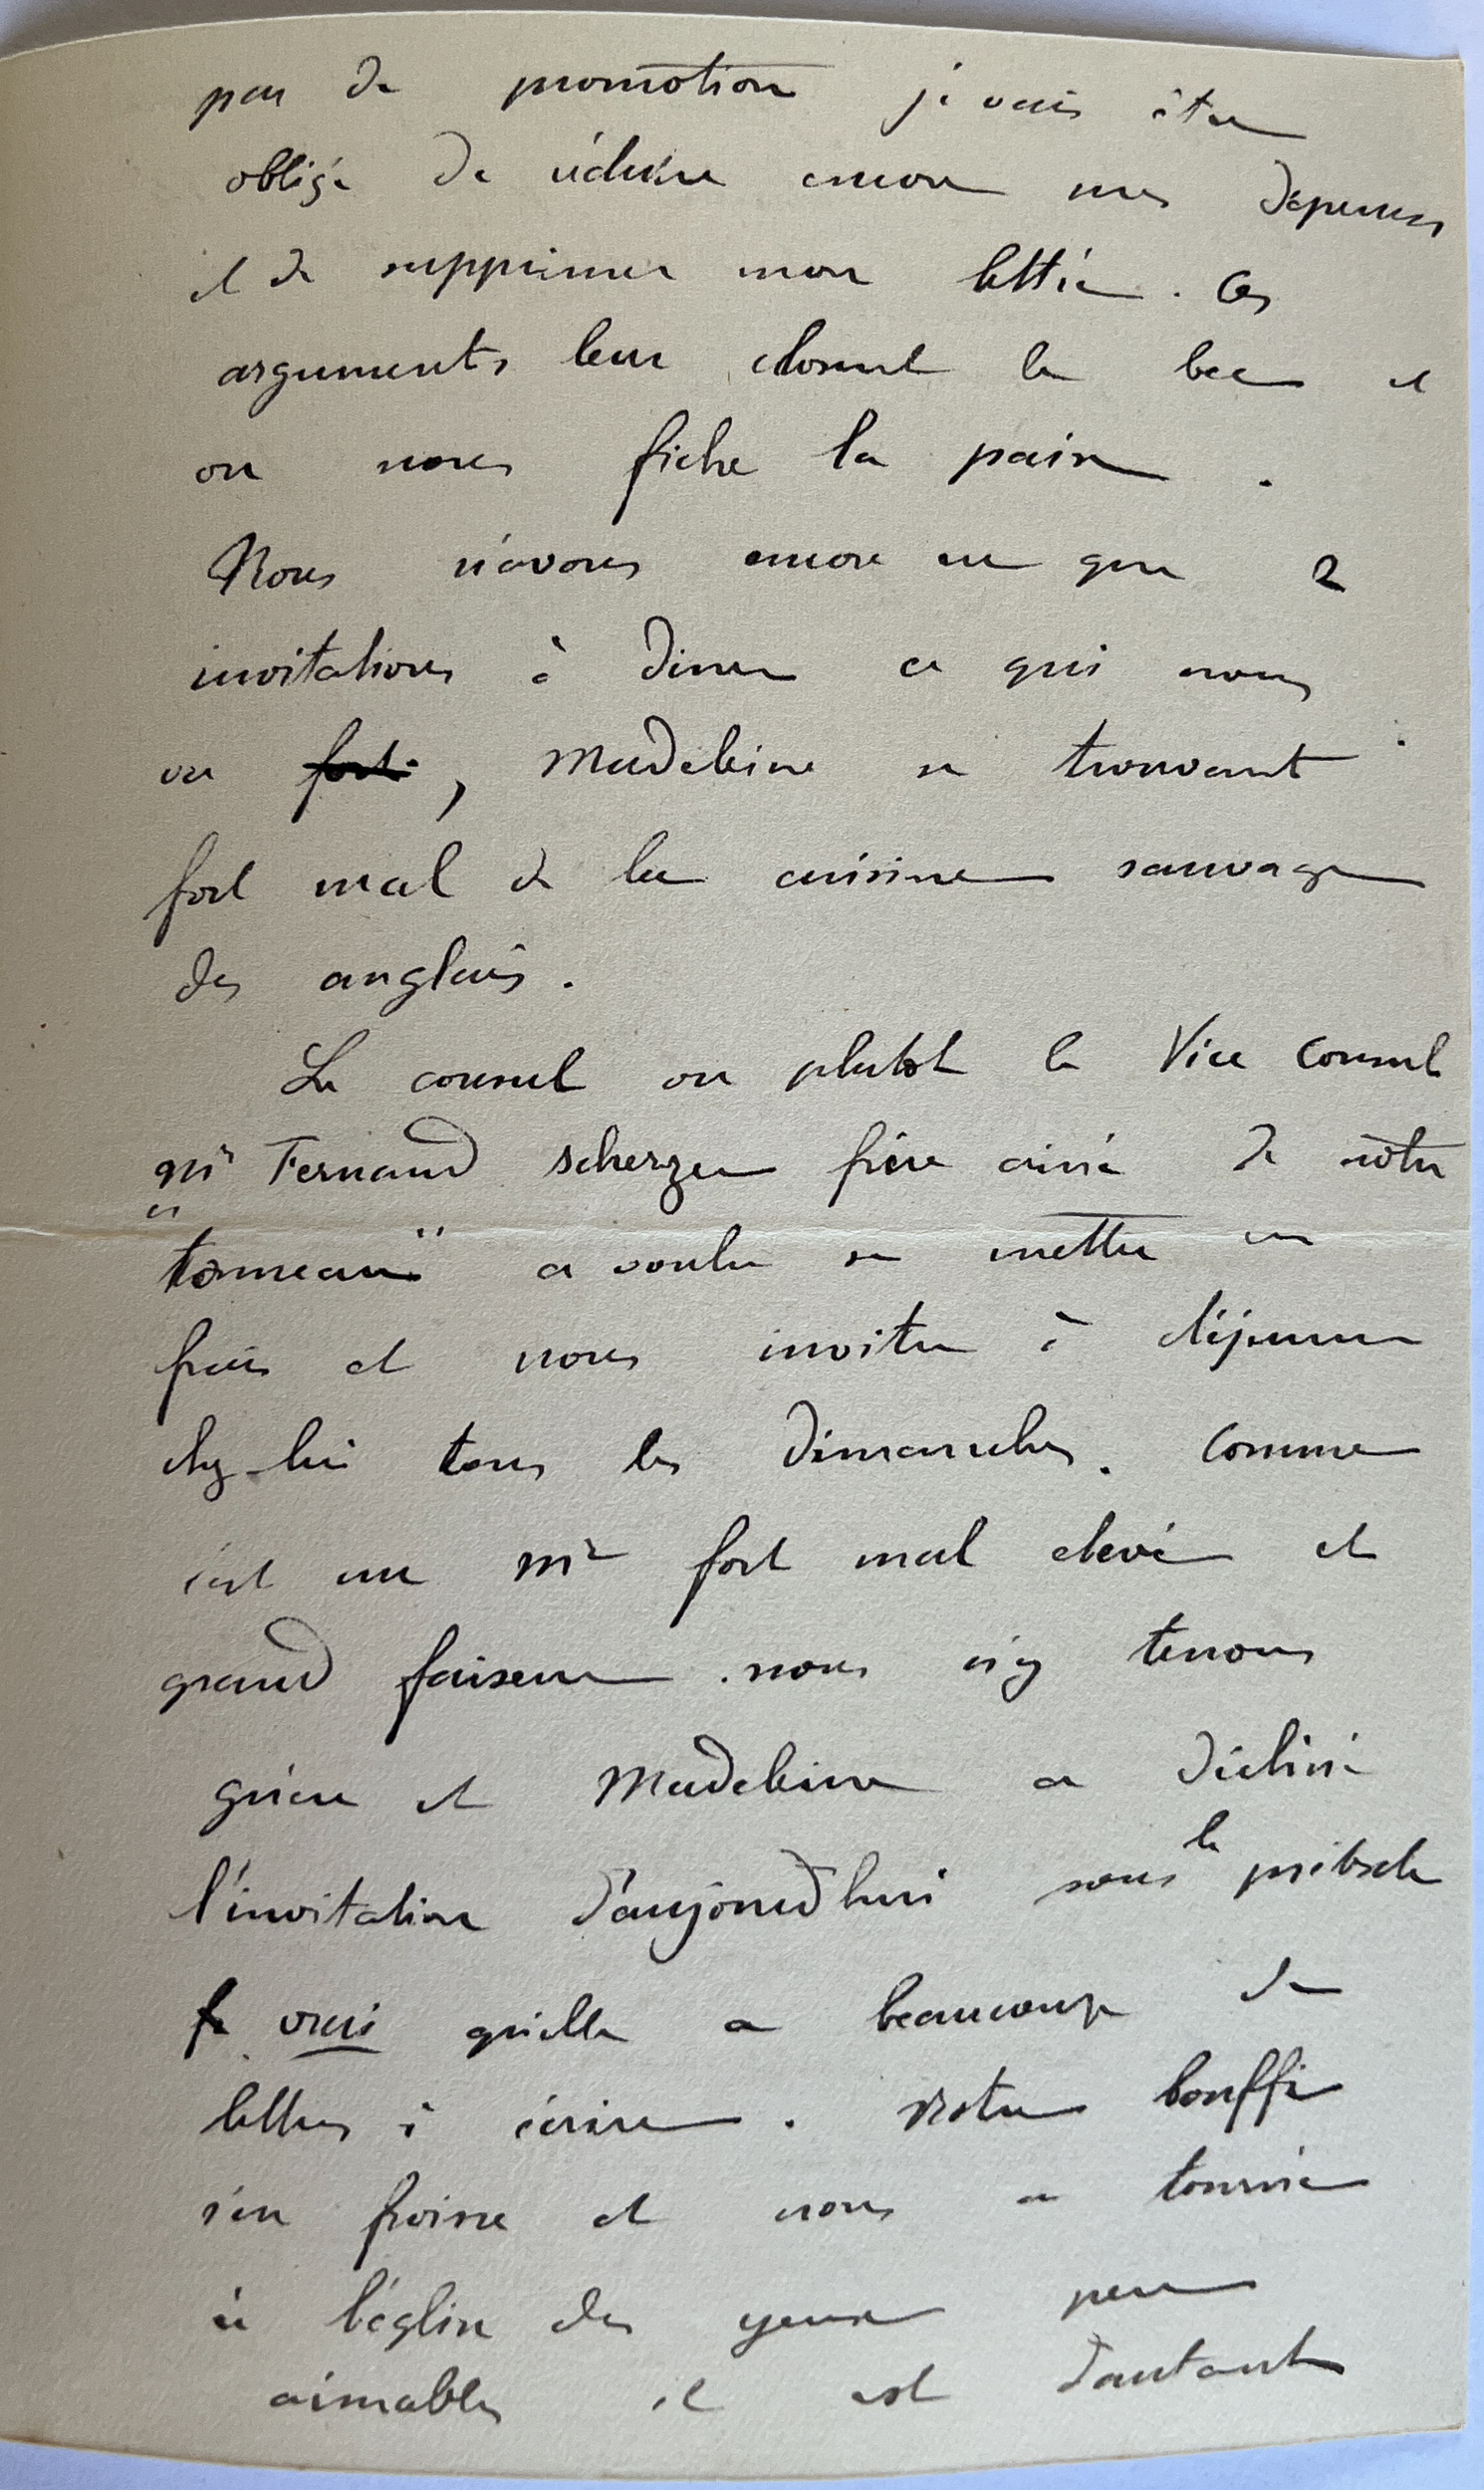 peu de promotion je vais être
obligé de réduire encore mes dépenses
et de supprimer mon lettré. Ces
arguments leur closent le bec et
on nous fiche la paix.
Nous n'avons encore eu que 2
invitations à dîner ce qui nous
va, Madeleine se trouvant
fort mal de la cuisine sauvage
des anglais.
Le consul ou plutôt le Vice Consul
Mr Fernand Scherzer frère ainé de notre
"tonneau" a voulu se mettre en
frais et nous inviter à déjeuner
chez-lui tous les Dimanches. Comme
c'est un Mr fort mal elevé et
grand faiseur. nous n'y tenons
guère et Madeleine a décliné
l'invitation d'aujourd'hui sous le prétexte
vrai qu'elle a beaucoup de
lettres à écrire. Notre bouffi
s'en froisse et nous a tourné
à l'église des yeux peu
aimables il est d'autant